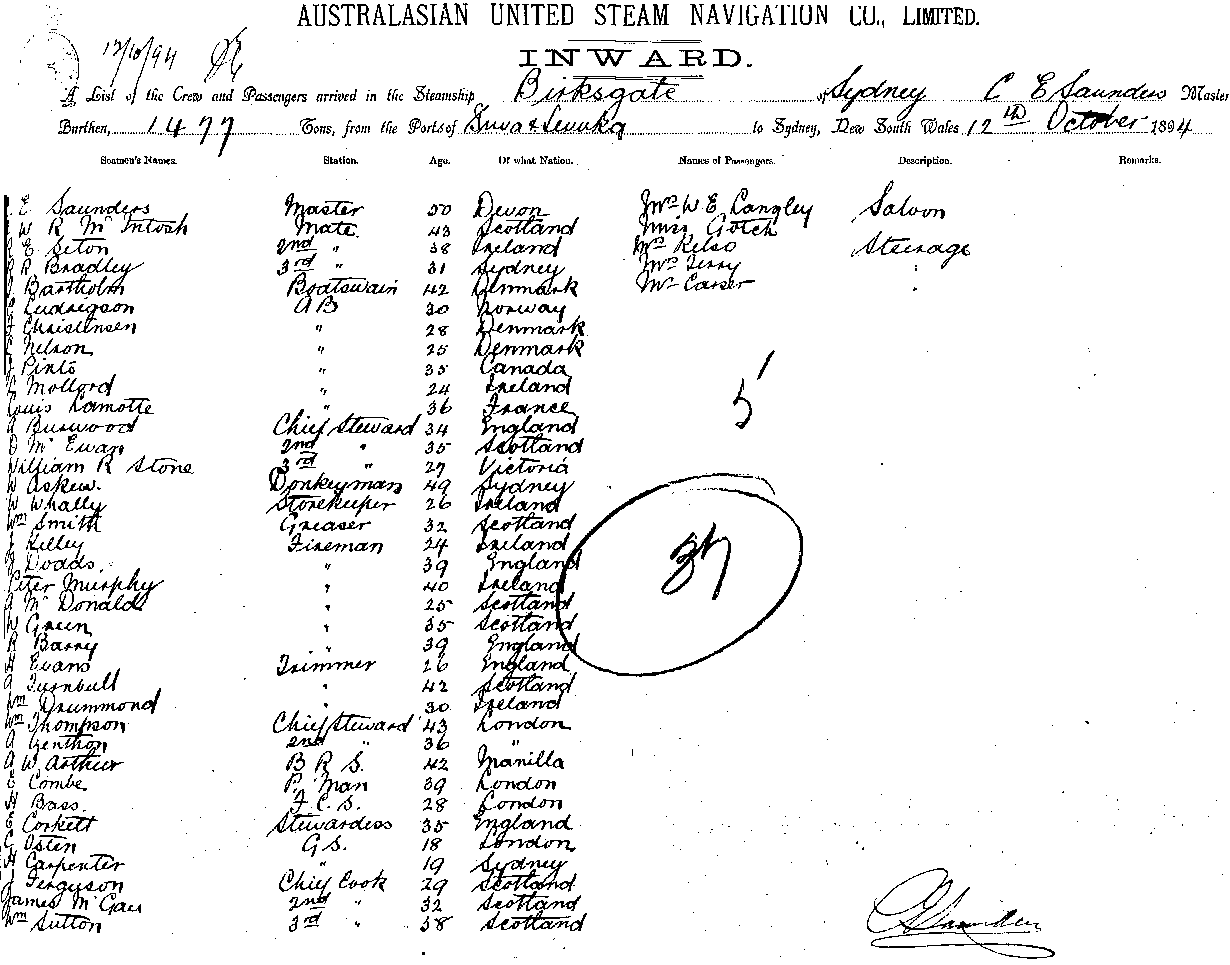 AUSTRALASIAN UNITED STEAM NAVIGATION CO., LIMITED.
12/10/94
INWARD.
A List of the Crew and Passengers arrived in the Steamship Birksgate of Sydney C E Saunders Master
Burthen, 1477 Tons, from the Ports of Suva & Levuka to Sydney, New South Wales 12th October 1894
Seamen's Names. Station. Age. Of what Nation. Names of Passengers. Description. Remarks.
E Saunders Master 50 Devon Mrs W E Langley Saloon
W R McIntosh Mate 43 Scotland Miss Gotch
E Seton 2nd " 38 Ireland Mr Kelso Steerage
R Bradley 3rd " 31 Sydney Mr Terry
J Bartholm Boatswain 42 Denmark Mr Carser
Ludrigson A B 30 Norway
J Christensen " 28 Denmark
Nelson " 25 Denmark
J Pinto " 35 Canada
Mollord " 24 Ireland
Louis Lamotte " 36 France 5
A Burwood Chief Steward 34 England
D McEwan 2nd " 35 Scotland
William R Stone 3rd " 27 Victoria
W Askew. Donkeyman 49 Sydney
W Whally Storekeeper 26 Ireland
Wm Smith Greaser 32 Scotland
J Kelley Fireman 24 Ireland 37
J Dodds. " 39 England
Peter Murphy " 40 Ireland
A McDonald " 25 Scotland
W Green " 35 Scotland
R Barry " 39 England
H Evans Trimmer 26 England
A Turnbull " 42 Scotland
Wm Drummond " 30 Ireland
Wm Thompson Chief Steward 43 London
A Genthon 2nd " 36 "
A W Arthur B R S. 42 Manilla
E Combe P. Man 39 London
H Bass. F. C. S. 28 London
E Corkett Stewardess 35 England
C Osten G S. 18 London
H Carpenter " 19 Sydney
J Ferguson Chief Cook 29 Scotland
James McGaw 2nd " 32 Scotland
Wm Sutton 3rd " 38 Scotland